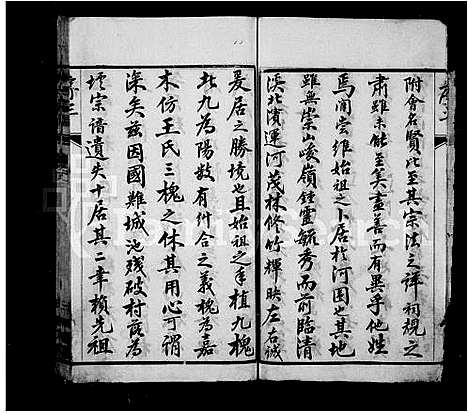 附會名賢比至其宗法之詳祠規之
肅雖未能至美盡善而有異乎他姓
焉聞雲維始祖之卜居於河圉也其地
雖無崇山峻嶺鍾靈毓秀而前臨清
溪北濱運河茂林修竹輝映左右誠
爰居之勝境也且始祖之手植九槐
北九為陽數有州合之義槐為嘉
木仿王氏三槐之休其用心可謂
深矣茲因國難城池殘破村莊為
墟宗譜遺失十居其二幸賴先祖